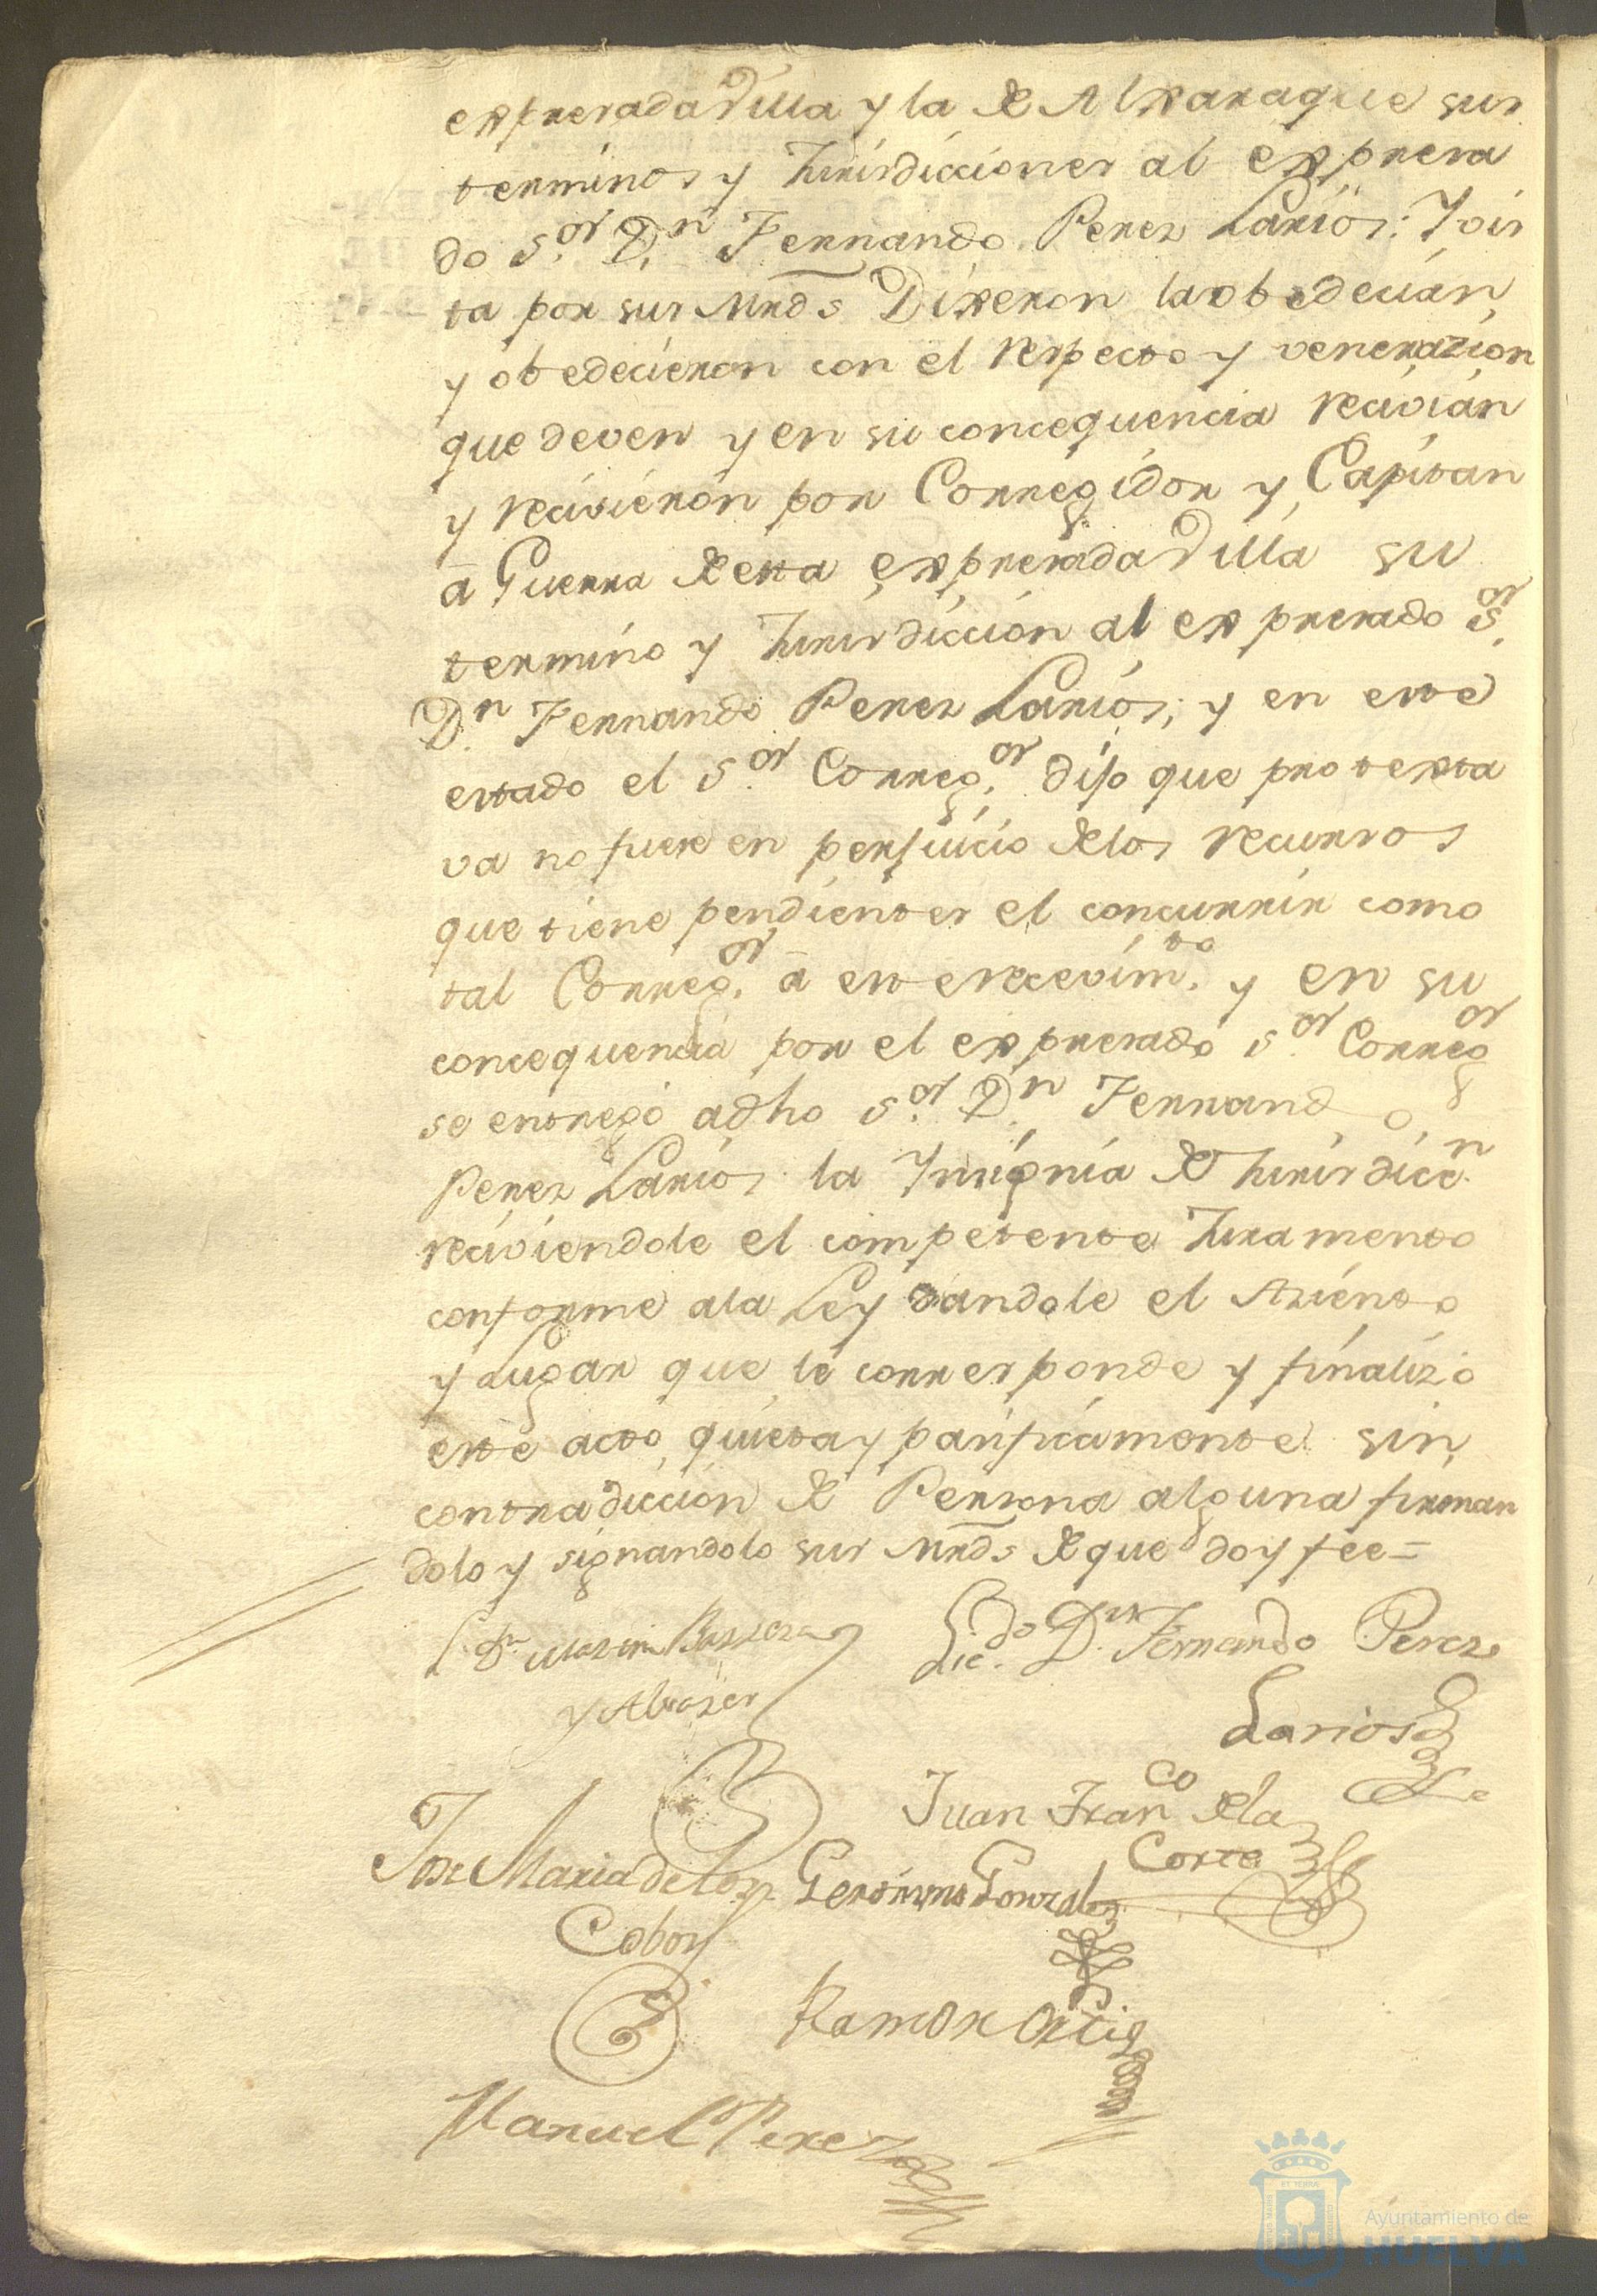 expresada Villa y la de Aljaraque sus
terminos y Jurisdicciones al expresa
do S.or D.n Fernando Perez Larios: Y ois
ta por sus Mrds Dixeron la obedecian
y obedecieron con el respecto y venerazion
que deven y en su concequencia recivian
y recivieron por Corregidor y Capitan
a Guerra de esta expresada Villa su
termino y Jurisdiccion al expresado S.or
D.n Fernando Perez Larios; y en este
estado el S.or Correg.or dijo que protexta
va no fuese en perjuicio de los recursos
que tiene pendientes el concurrir como
tal Correg.or a este recevim.to y en su
concequencia por el expresado S.or Correg.or
se entregó a dho S.or D.n Fernando
Perez Larios la Ynsignia de Jurisdicc.n
reciviendole el competente Juramento
conforme a la Ley dandole el Aziento
y Lugar que le corresponde y finalizó
este acto, quieta y pasificamente sin
contradiccion de Persona alguna firman
dolo y signandolo sus Mrds de que doy fee=
L. D.n Martin Barrera
Lic.do D.n Fernando Perez
Larios
Juan Fran.co de la
Corte
Jose Maria de los
Cobos
Geronimo Gonzalez
Ramon Ortiz
Manuel Perez
Ayuntamiento de
HUELVA